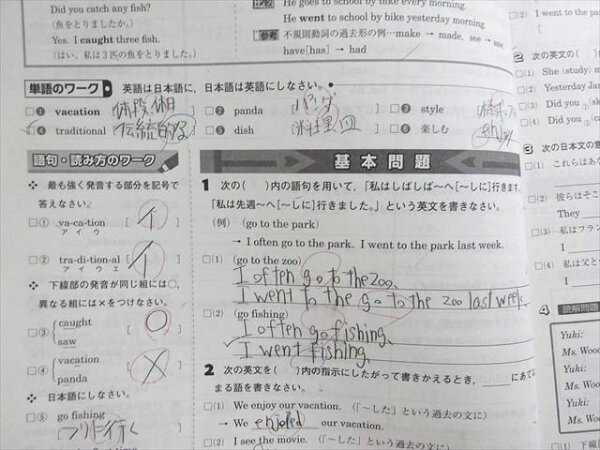 Did you catch any fish?
(魚をとりましたか。)
Yes. I caught three fish.
(はい。私は3匹の魚をとりました。)
比較 He goes to school by bike every morning.
He went to school by bike yesterday morning.
参考 不規則動詞の過去形の例…make → made, see → saw
have[has] → had
単語のワーク 英語は日本語に，日本語は英語にしなさい。
□① vacation [休暇、休日] □② panda [パンダ] □③ style
□④ traditional [伝統的な] □⑤ dish [料理、皿] □⑥ 楽しむ
語句・読み方のワーク
❖ 最も強く発音する部分を記号で
答えなさい。
□① va-ca-tion [イ]
ア イ ウ
□② tra-di-tion-al [イ]
ア イ ウ エ
❖ 下線部の発音が同じ組には○，
異なる組には×をつけなさい。
□③ caught [○]
saw
□④ vacation [×]
panda
❖ 日本語にしなさい。
□⑤ go fishing
つりに行く
基本問題
1 次の( )内の語句を用いて，「私はしばしば～へ[～しに]行きます。
「私は先週～へ[～しに]行きました。」という英文を書きなさい。
(例) (go to the park)
→ I often go to the park. I went to the park last week.
□(1) (go to the zoo)
I often go to the zoo.
I went to the go to the zoo last week.
□(2) (go fishing)
I often go fishing.
I went fishing.
2 次の英文を( )内の指示にしたがって書きかえるとき，＿＿にあて
まる語を書きなさい。
□(1) We enjoy our vacation. (「～した」という過去の文に)
→ We enjoied our vacation.
□(2) I see the movie. (「～した」という過去の文に)
□(2) I went to the p
→
2 次の英文の(
□(1) She (study) m
□(2) Yesterday Jan
□(3) Did you
□(4) Did you
3 次の日本文の意
□(1) これらはあな
□(2) 彼らはそこ
They
□(3) 私はフラン
I
□(4) 私は父と
I
4 読解問題
Yuki:
Ms. Wood
Yuki:
Ms. Wood
Yuki:
Ms. Wood